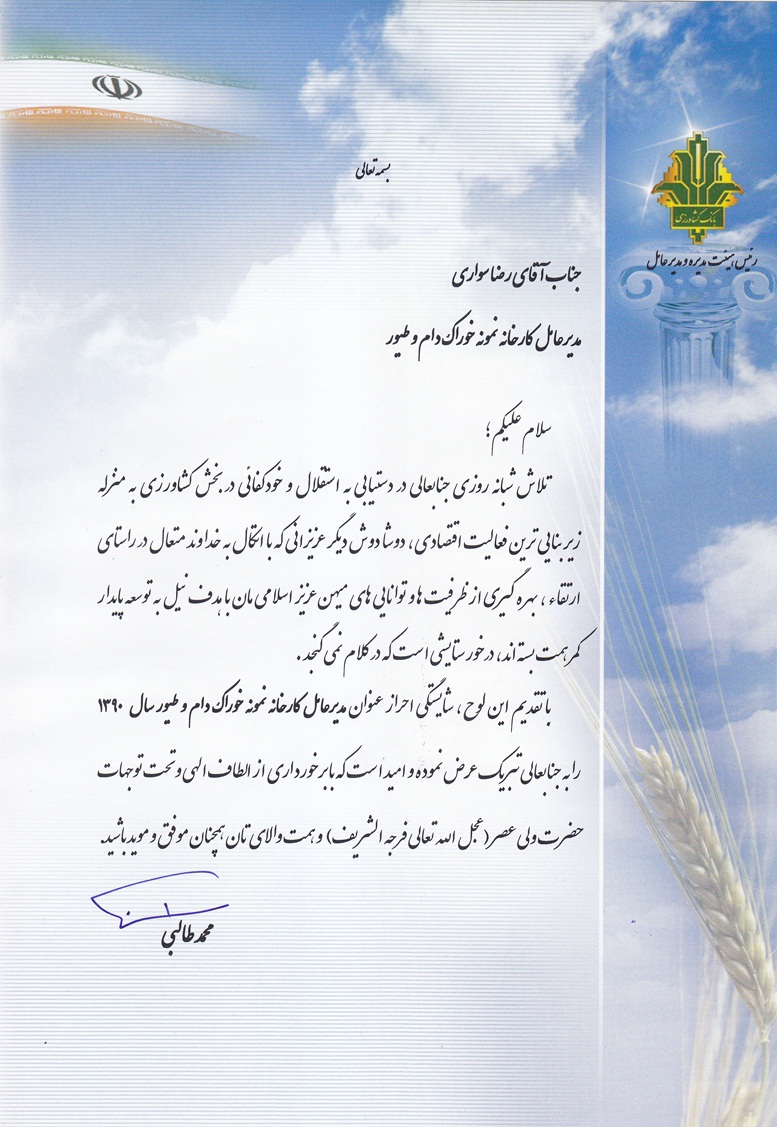 بسمه تعالی
بانک کشاورزی
رئیس هیئت مدیره و مدیرعامل
جناب آقای رضا سواری
مدیرعامل کارخانه نمونه خوراک دام و طیور
سلام علیکم ؛
تلاش شبانه روزی جنابعالی در دستیابی به استقلال و خودکفائی در بخش کشاورزی به منزله
زیر بنایی ترین فعالیت اقتصادی، دوشادوش دیگر عزیزانی که با اتکال به خداوند متعال در راستای
ارتقاء ، بهره گیری از ظرفیت ها و توانایی های میهن عزیز اسلامی مان با هدف نیل به توسعه پایدار
کمر همت بسته اند، در خور ستایشی است که در کلام نمی گنجد .
با تقدیم این لوح ، شایستگی احراز عنوان مدیرعامل کارخانه نمونه خوراک دام و طیور سال ۱۳۹۰
را به جنابعالی تبریک عرض نموده و امید است که با برخورداری از الطاف الهی و تحت توجهات
حضرت ولی عصر (عجل الله تعالی فرجه الشریف) و همت والای تان همچنان موفق و موید باشید.
محمد طالبی